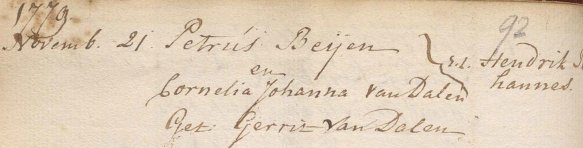 1779
92
Novemb. 21. Petrus Beijen
en
Cornelia Johanna van Dalen
Get. Gerrit van Dalen
Hendrik
hannes.